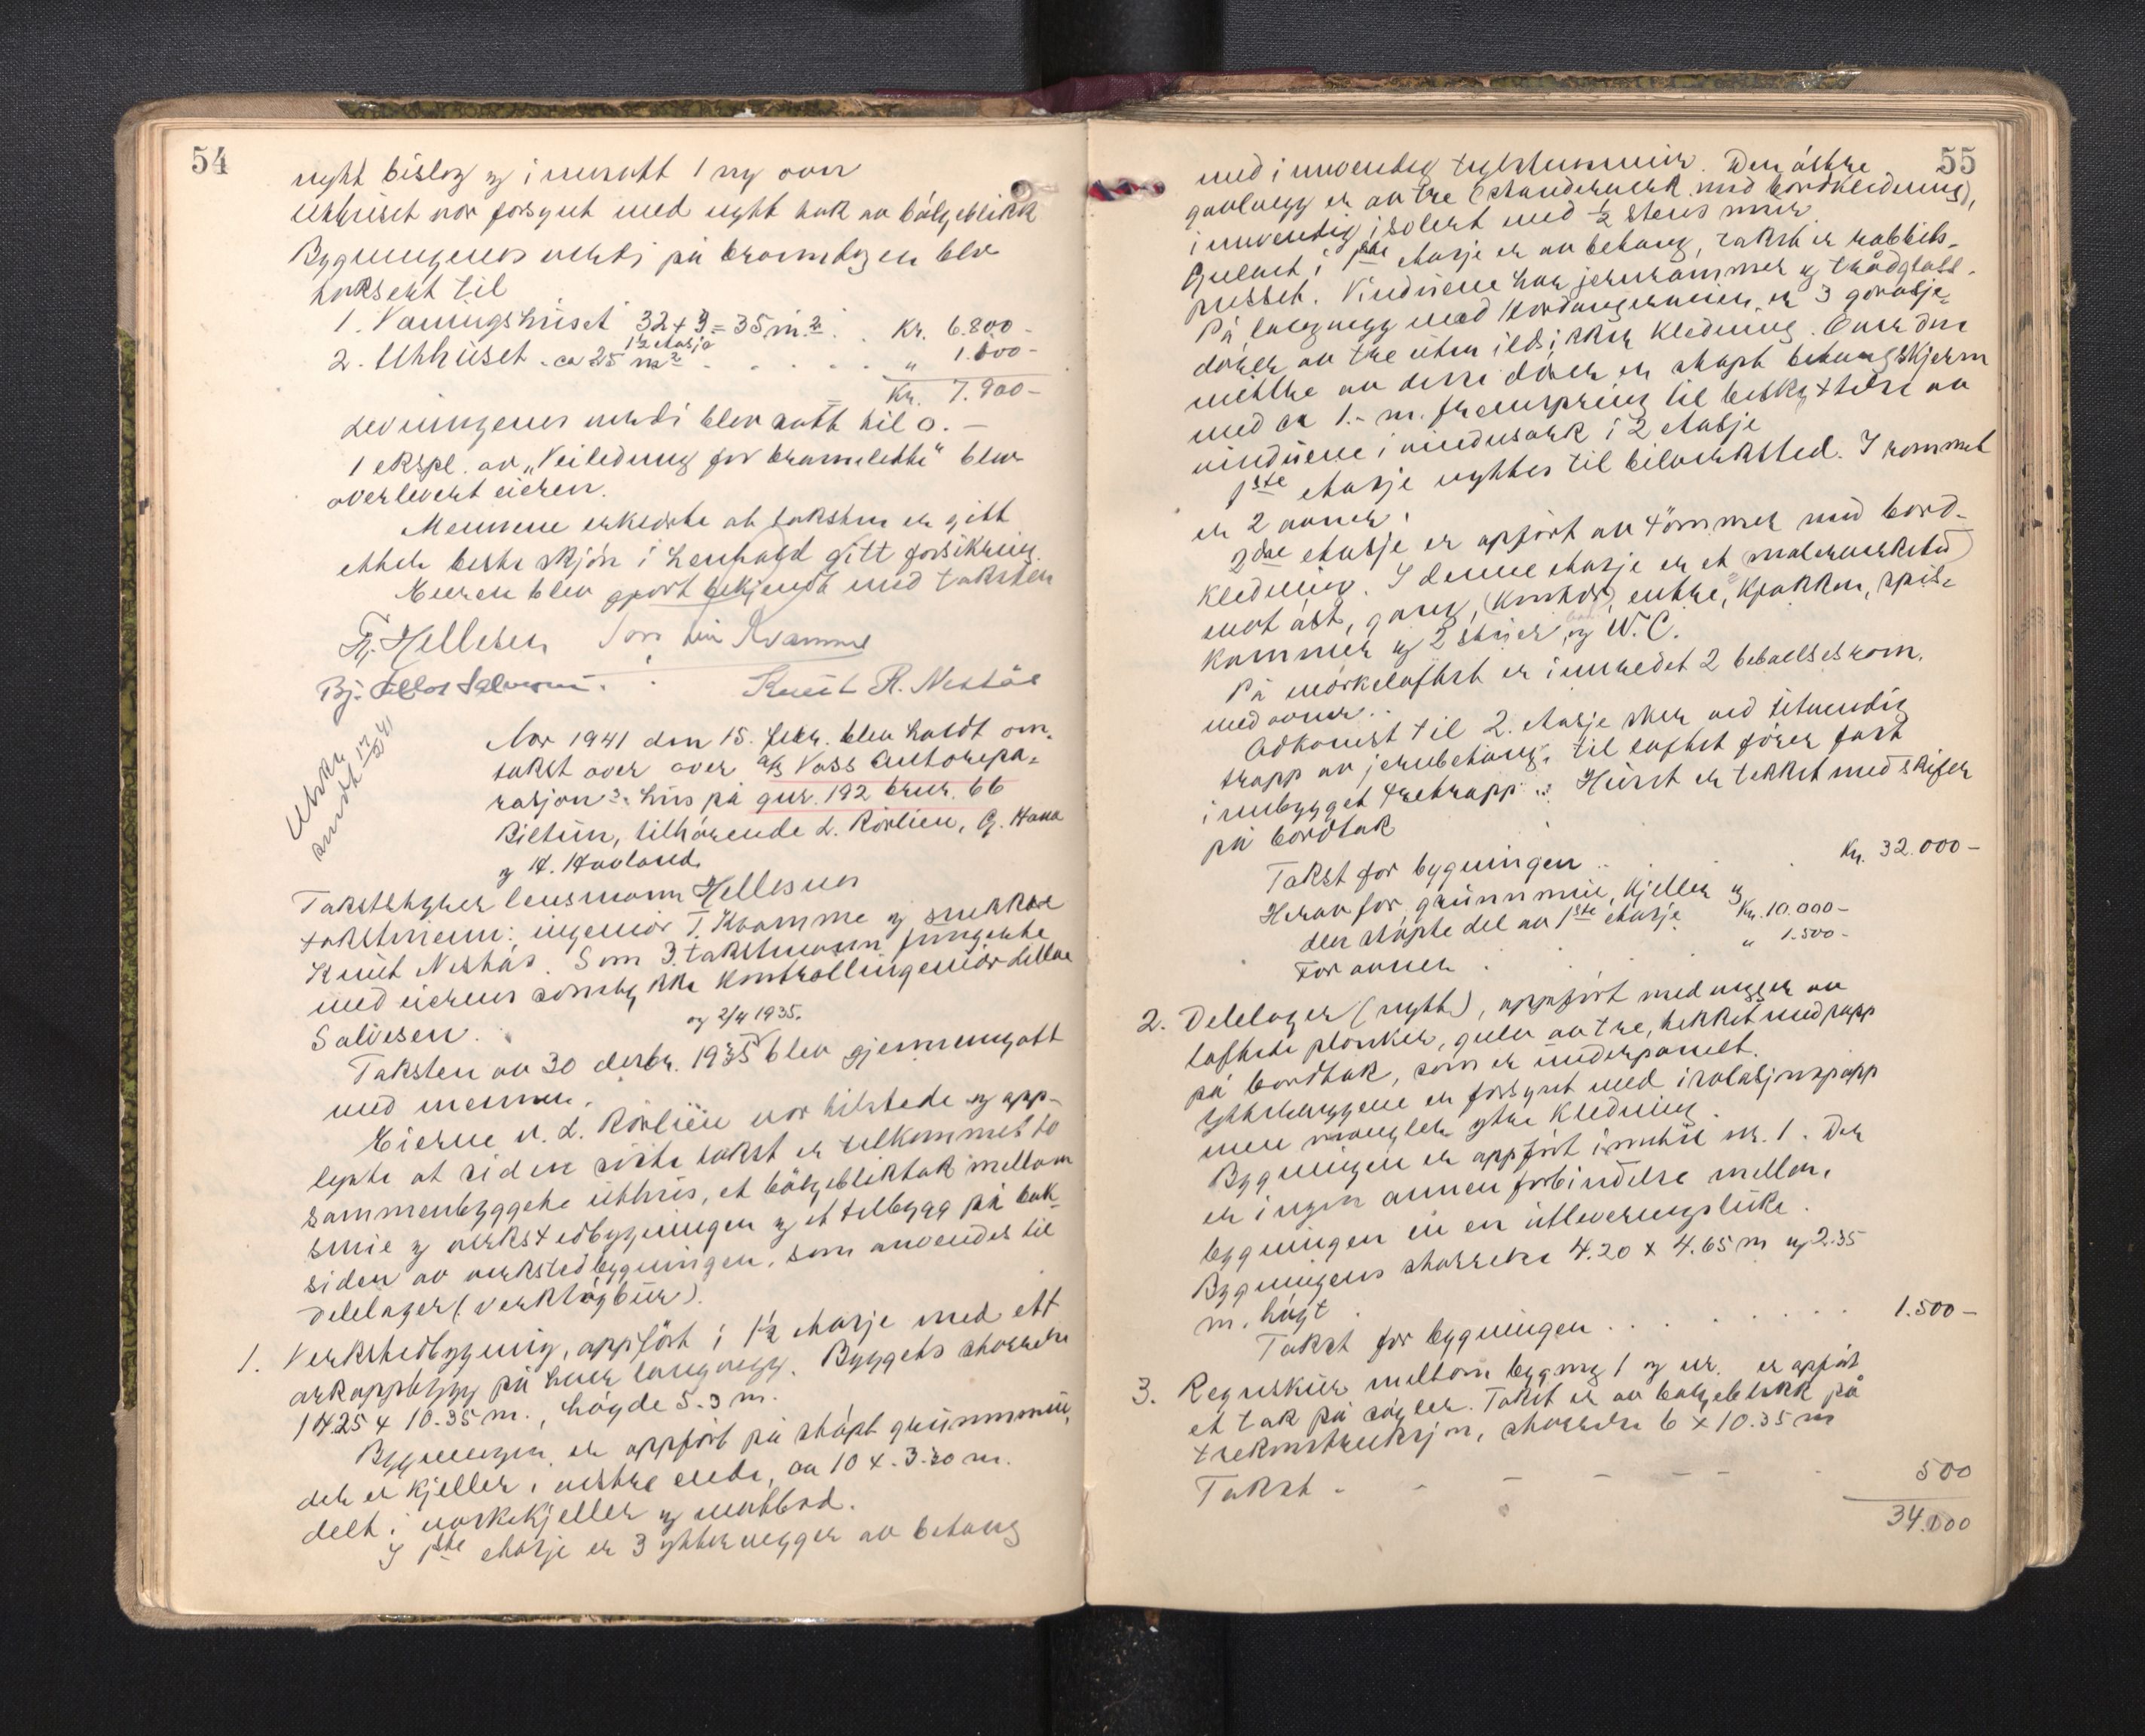 54
nytt bislag og innsatt 1 ny ovn
Uthuset var forsynt med nytt tak av bølgeblikk
Bygningenes verdi på branndagen blev
taksert til
1. Våningshuset 32+3=35 m.² . . Kr. 6.800 -
1½ etasje
2. Uthuset - ca 25 m² . . . . . " 1.100 -
Kr. 7.900 -
Levningenes verdi blev satt til 0. -
1 ekspl. av „Veiledning for brannlidte" blev
overlevert eieren.
Mennene erklærte at taksten er gitt
etter beste skjøn i henhold gitt forsikring.
Eieren blev gjort bekjendt med taksten
Hellesen Kvamme
Knut R. Nestås
Utskr.
sendt
Aar 1941 den 15. febr. blev holdt om-
takst over over a/s Voss Autorepa-
rasjon's hus på gnr. 192 brnr. 66
Biltun, tilhørende L. Rørlien, G. Haua
og H. Haaland.
Takstbestyrer lensmann Hellesnes
takstmenn: ingeniør T. Kvamme og snekker
Knut Nestås. Som 3. takstmann fungerte
med eierens samtykke kontrollingeniør Lillo
Salvesen.
og 2/4 1935.
Taksten av 30 desbr. 1935 blev gjennemgått
med mennene.
Eierne v. L. Rørlien var tilstede og opp-
lyste at siden siste takst er tilkommet to
sammenbyggete uthus, et bølgebliktak mellom
smie og verkstedbygningen og et tilbygg på bak-
siden av verkstedbygningen, som anvendes til
Delelager (verktøybur).
1. Verkstedbygning, oppført i 1½ etasje med ett
arkoppbygg på hver langvegg. Byggets størrelse
14.25 x 10.35 m., høyde 5.3 m.
Bygningen er oppført på støpt grunnmur,
der er kjeller i vestre ende, av 10 x 3.30 m.
delt i vaskekjeller og matbod.
I 1ste etasje er 3 yttervegger av betong
55
med innvendig teglstensmur. Den østre
gavlvegg er av tre (standerverk med bordkledning),
innvendig isolert med ½ stens mur.
Gulvet i 1ste etasje er av betong, taket er rabbits-
pusset. Vinduene har jernrammer og trådglass.
På langvegg mod Hordangerveien er 3 garasje-
dører av tre uten ildsikker kledning. Over den
midtre av disse dører er støpt betongskjerm
med ca 1.- m. fremspring til beskyttelse av
vinduene i vindusark i 2 etasje
1ste etasje nyttes til bilverksted. I rommet
er 2 ovner.
2dre etasje er oppført av tømmer med bord-
kledning. I denne etasje er et malerverksted
mot øst, gang, (kontor), entre, kjøkken, spis-
kammer og 2 stuer, og W.C.
På mørkeloftet er innredet 2 beboelsesrom,
med ovner..
Adkomst til 2. etasje skjer ved utvendig
trapp av jernbetong, til loftet fører fast
innbygget tretrapp. Huset er tekket med skifer
på bordtak
Takst for bygningen . . . Kr. 32.000 -
Herav for grunnmur, kjeller og
den støpte del av 1ste etasje Kr. 10.000 -
For ovner . . . " 1.500 -
2. Delelager (nytt), oppført med vegger av
loftede planker, gulv av tre, tekket med papp
på bordtak, som er underpanelt.
Ytterveggene er forsynt med isolasjonspapp
men mangler ytre kledning.
Bygningen er oppført inntil nr. 1. Der
er ingen annen forbindelse mellem
bygningen en en utleveringsluke.
Bygningens størrelse 4.20 x 4.65 m og 2.35
m. høgt.
Takst for bygningen . . . . . . 1.500 -
3. Regnskur mellom bygning 1 og nr. er oppført
et tak på søyler. Taket er av bølgeblikk på
trekonstruksjon, størrelse 6 x 10.35 m
Takst - - - - - - 500
34.000